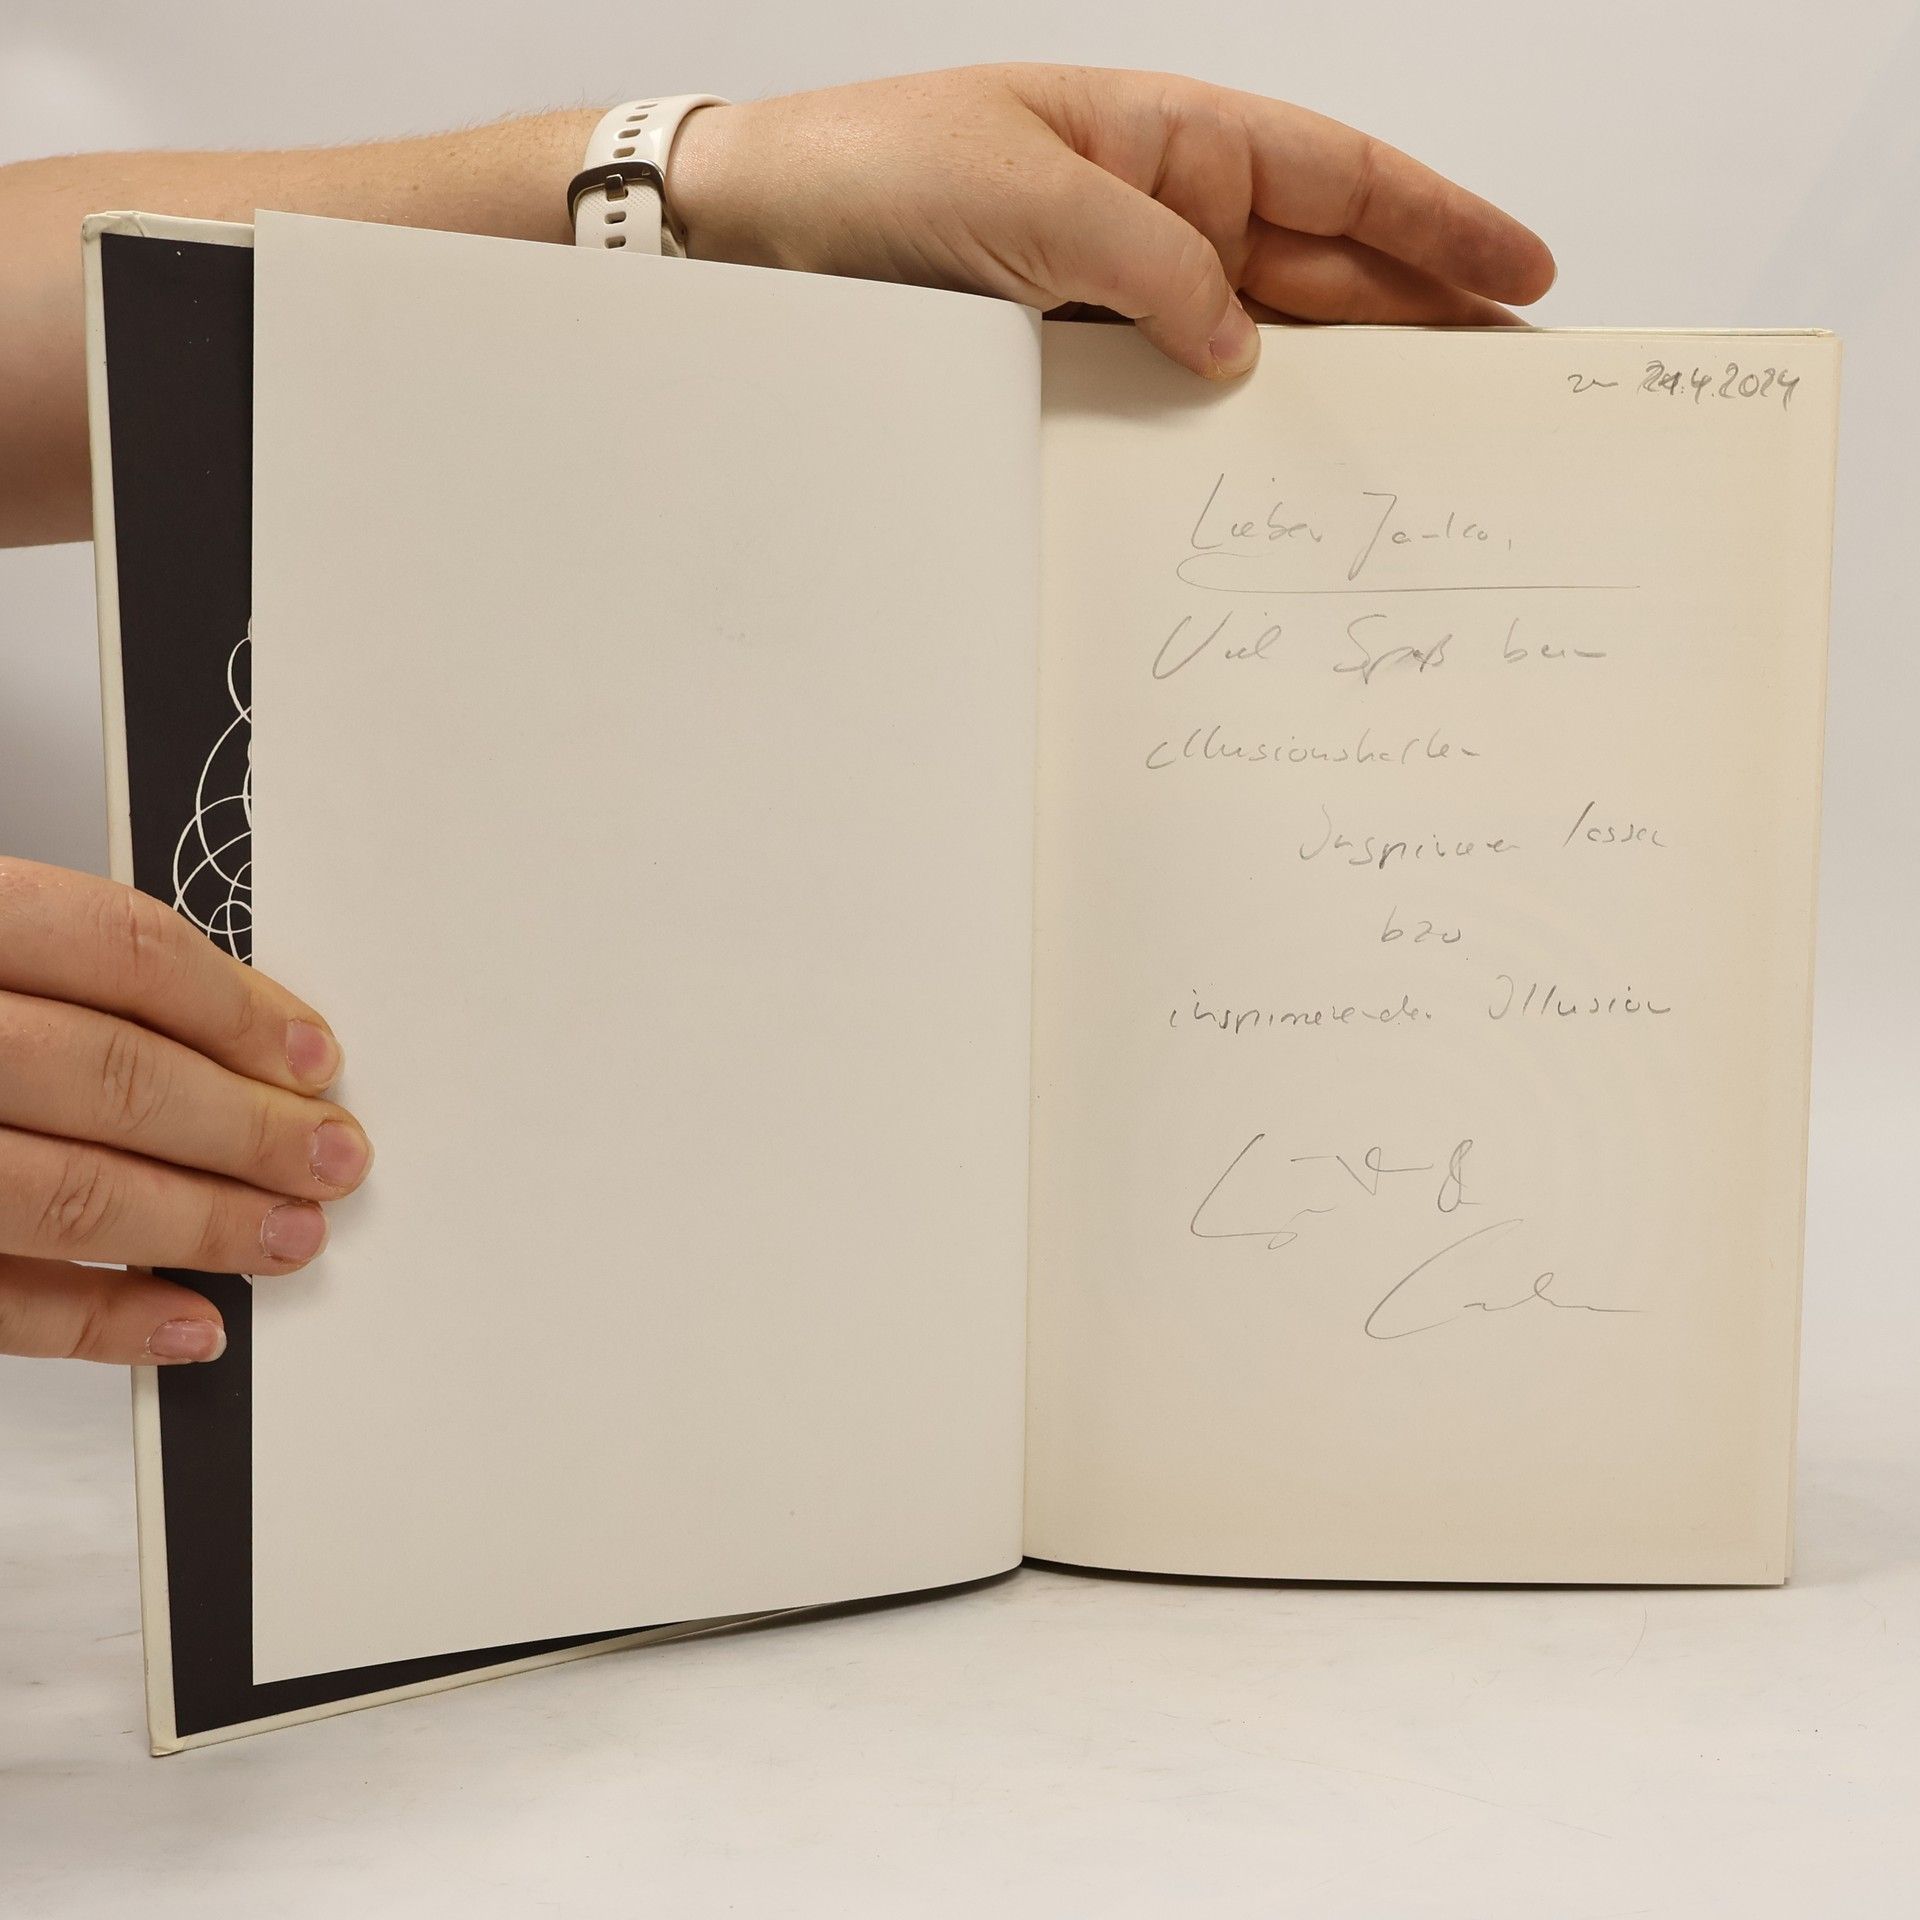 zum 21.4.2024
Lieber Janko,
Viel Spaß beim
illusionshaften
Inspirieren lassen
bzw
inspirierender Illusion